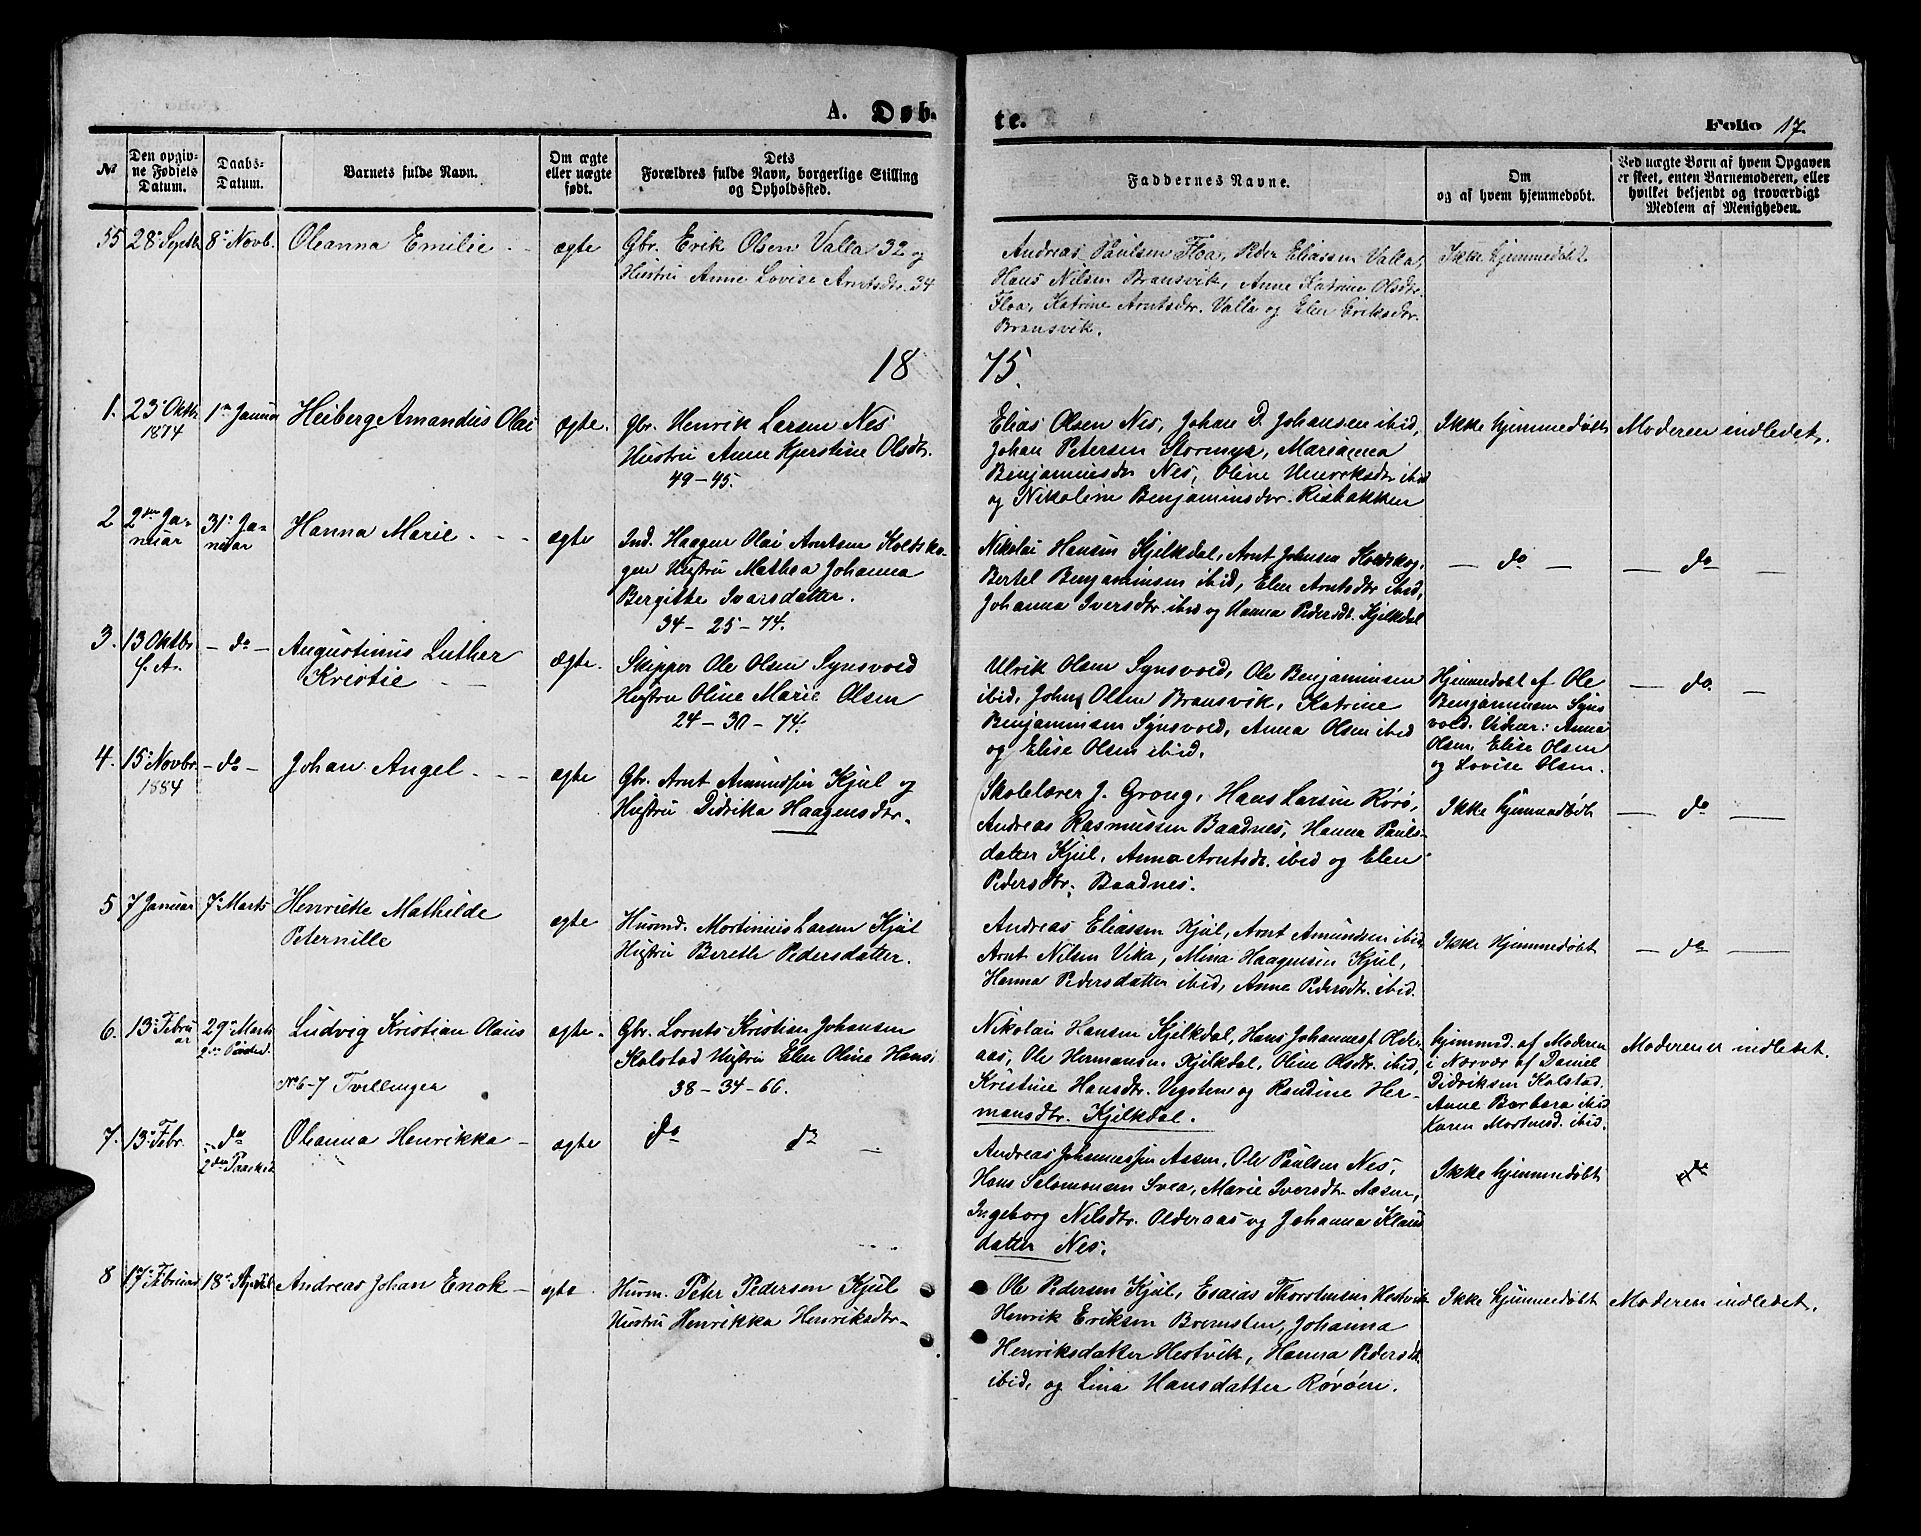 A. Døb-
te.
Folio 17.
№
Den opgiv-
ne Fødsels
Datum.
Daabs-
Datum.
Barnets fulde Navn.
Om ægte
eller uægte
født.
Dets
Forældres fulde Navn, borgerlige Stilling
og Opholdssted.
Faddernes Navne.
Om
og af hvem hjemmedøbt.
Ved uægte Børn af hvem Opgaven
er skeet, enten Barnemoderen, eller
hvilket beljendt og troværdigt
Medlem af Menigheden.
55
28 Septbr
8 Novb.
Oleanna Emilie
ægte
Gbr. Erik Olsen Valla 32 og
Hustru Anne Lovise Arntsdtr. 34
Andreas Paulsen Floa, Peder Eliassen Valla,
Hans Nilsen Bransvik, Anne Katrine Olsdtr.
Floa, Katrine Arntsdtr. Valla og Elen Eriksdtr.
Bransvik.
Ikke hjemmedøbt
18 75.
1.
23 Oktbr
1874
1 Januar
Heiberg Amandus Olai
ægte.
Gbr. Henrik Larsen Nes
Hustru Anne Kjerstine Olsdtr.
49-45.
Elias Olsen Nes, Johan D. Johansen ibid,
Johan Petersen Stormyr, Marianna
Benjaminsdtr Nes, Oline Henriksdtr ibid
og Nikoline Benjaminsdtr. Risbakken
Ikke hjemmedøbt
Moderen indledet.
2
2den Ja-
nuar
31 Ja-
nuar
Hanna Marie
ægte
Ind. Haagen Olai Arntsen Koldsko-
gen Hustru Mathea Johanna
Bergitte Ivarsdatter.
34-25-74.
Nikolai Hansen Kjelkdal, Arnt Johnsen Koldskog,
Bertel Benjaminsen ibid, Elen Arntsdtr ibid,
Johanna Iversdtr. ibid og Hanna Pedersdt. Kjelkdal
— do —
— do —
3.
13 Oktbr
f. A.
— do —
Augustinus Luther
Kristie
ægte.
Skipper Ole Olsen Synsvold
Hustru Oline Marie Olsen
24-30-74.
Ulrik Olsen Synsvold, Ole Benjaminsen
ibid, Johns Olsen Bransvik, Katrine
Benjaminsen Synsvold, Anna Olsen ibid
og Elise Olsen ibid.
Hjemmedøbt af Ole
Benjaminsen Syns
vold. Vidner: Anna
Olsen, Elise Olsen
og Lovise Olsen.
— do. —
4.
15 Novbr.
1884
— do —
Johan Angel
ægte
Gbr. Arnt Amundsen Kjul og
Hustru Didrika Haagensdtr.
Skolelærer J. Grong, Hans Larsen Rørø,
Andreas Rasmussen Baadnes, Hanna Pauls-
datter Kjul, Anna Arntsdt. ibid og Elen
Pedersdtr. Baadnes.
Ikke hjemmedøbt
— do —
5
7 Januar
7 Marts
Henrikke Mathilde
Peternille
ægte
Husmd. Mortinius Larsen Kjul
Hustru Bereth Pedersdatter.
Andreas Eliassen Kjul, Arnt Amundsen ibid
Arnt Nilsen Vika, Mina Haagensen Kjul,
Hanna Pedersdatter ibid, Anne Pedersdtr. ibid.
Ikke hjemmedøbt
— do —
6.
13 Febru
ar
29 Marts
Ludvig Kristian Olaus
№ 6-7 Tvillinger
ægte.
Gbr. Lornts Kristian Johansen
Kolstad Hustru Elen Oline Hans:
38-34-66.
Nikolai Hansen Kjelkdal, Hans Johannesf. Older-
aas, Ole Hermansn. Kjelkdal, Oline Olsdtr. ibid,
Kristine Hansdtr. Vegsten og Randine Her-
mansdtr. Kjelkdal.
hjemmd. af Moderen
i Norvær af Daniel
Didriksen Kolstad.
Anne Barbara ibid
Karen Mortensd. ibid.
Moderen er indledet.
7.
13 Febr.
— do
2den Paasked.
Oleanna Henrikka
ægte
do do
Andreas Johannessen Aasen, Ole Paulsen Nes,
Hans Salomonsen Svea, Marie Iversdtr. Aasen,
Ingeborg Nilsdtr. Olderaas og Johanna Klaus
datter Nes.
Ikke hjemmedøbt
8
17 Februar
18 April
Andreas Johan Enok
ægte.
Husm. Peter Pedersen Kjul
Hustru Henrikka Henriksdtr.
Ole Pedersen Kjul, Esaias Thorstensen Hestvik
Henrik Eriksen Bremsten, Johanna
Henriksdatter Hestvik, Hanna Pedersdt.
ibid, og Lina Hansdatter Rørøen.
Ikke hjemmedøbt
Moderen indledet.